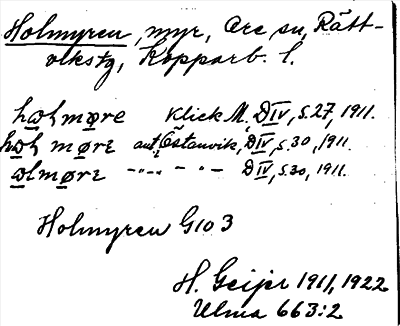 Holmyren, myr, Ore sn, Rätt-
vikstg, Kopparb. l.
hɷlmøre Klick M, DIV, s.27, 1911.
hɷl møre ant. Östanvik, DIV, s.30, 1911.
ɷlmøre -"- - " - DIV, s.30, 1911.
Holmyren G103
H. Geijer 1911, 1922
Ulma 663:2